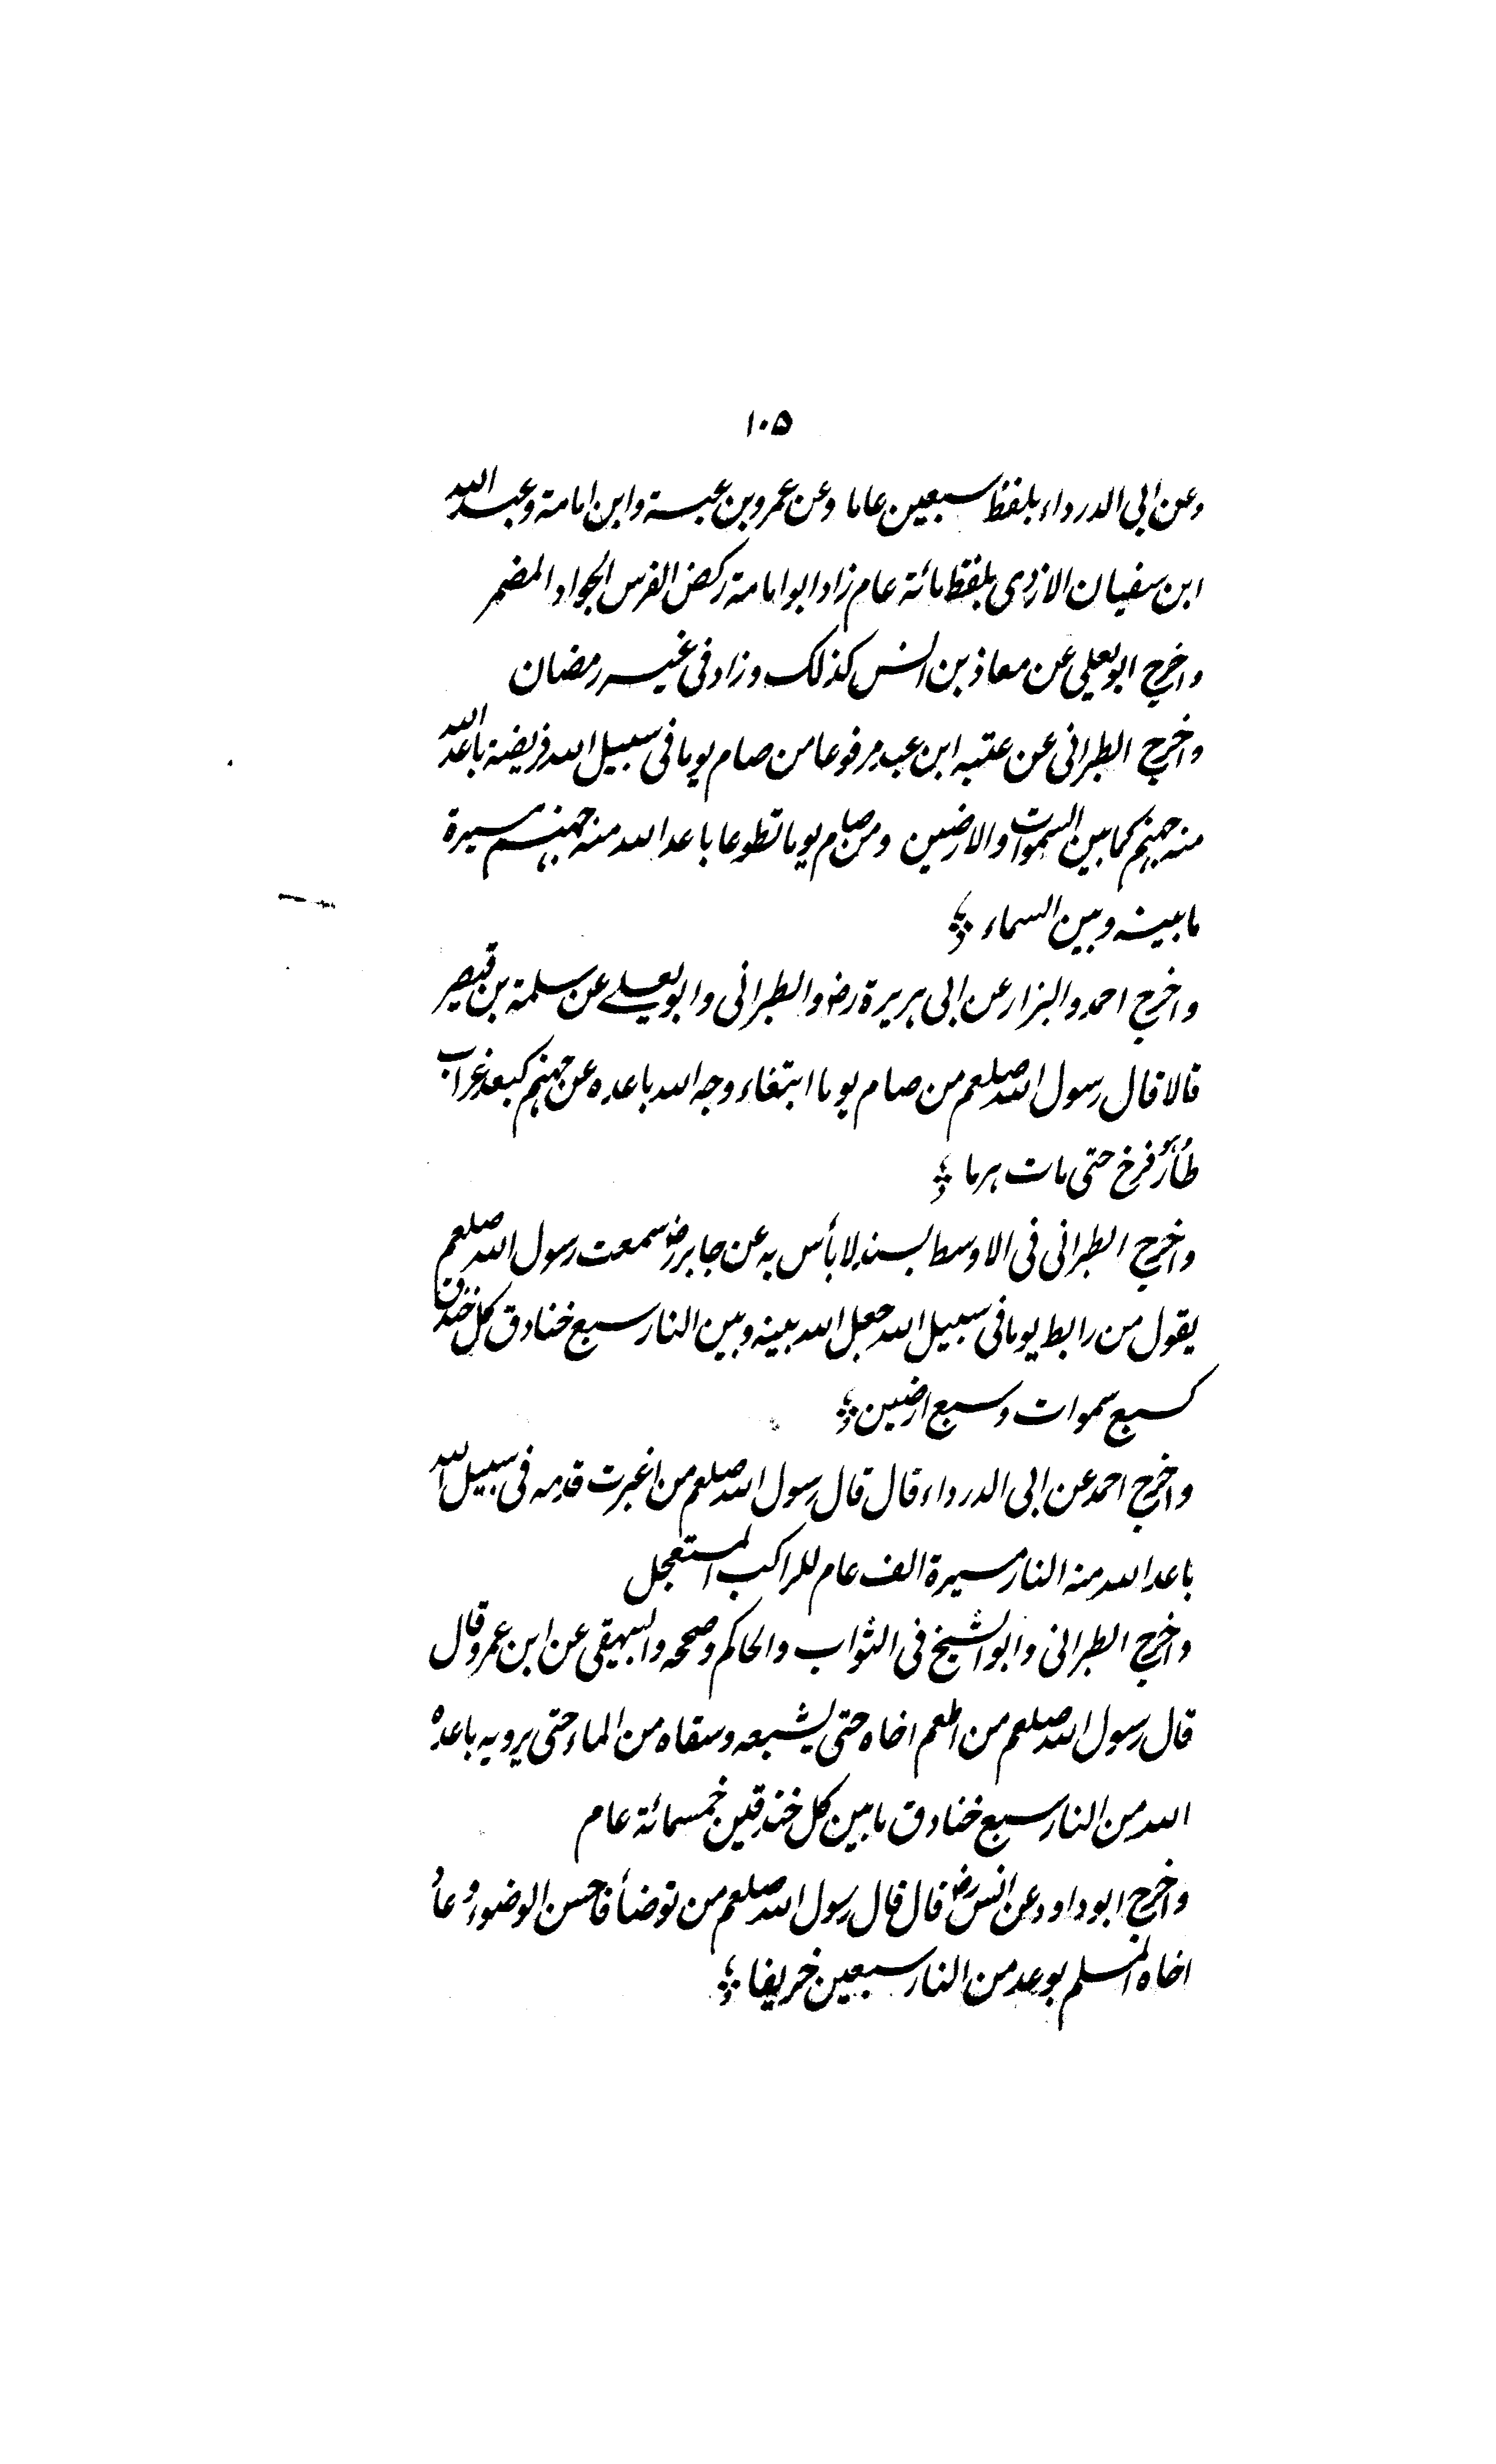 ۱۰۵
وعن ابی الدرداء بلفظ سبعین عاما وعن عمرو بن عبسة وابن امامة وعبد الله
ابن سفیان الازدی بلفظ مائة عام زاد ابو امامة رکض الفرس الجواد المضمر
واخرج ابو یعلی عن معاذ بن انس کذلک وزاد فی غیر رمضان
واخرج الطبرانی عن عتبه ابن عبد مرفوعا من صام یوما فی سبیل الله فریضة باعد الله
منه جهنم کما بین السموات والارضین ومن صام یوما تطوعا باعد الله منه جهنم مسیرة
ما بینه وبین السماء
واخرج احمد والبزار عن ابی هریرة رض والطبرانی وابو یعلے عن سلمة بن قیصر
قالا قال رسول الله صلعم من صام یوما ابتغاء وجه الله باعده عن جهنم کبعد غراب
طائر فرخ حتی مات هرما
واخرج الطبرانی فی الاوسط بسند لا بأس به عن جابر رض سمعت رسول الله صلعم
یقول من رابط یوما فی سبیل الله جعل الله بینه وبین النار سبع خنادق کل خندق
کسبع سموات وسبع ارضین
واخرج احمد عن ابی الدرداء قال قال رسول الله صلعم من اغبرت قدمه فی سبیل الله
باعد الله منه النار مسیرة الف عام للراکب المستعجل
واخرج الطبرانی وابو الشیخ فی الثواب والحاکم وصححه والبیهقی عن ابن عمرو قال
قال رسول الله صلعم من اطعم اخاه حتی یشبعه وسقاه من الماء حتی یرویه باعده
الله من النار سبع خنادق ما بین کل خندقین خمسمائة عام
واخرج ابو داود عن انس رض قال قال رسول الله صلعم من توضأ فاحسن الوضوء وعاد
اخاه المسلم بوعد من النار سبعین خریفا